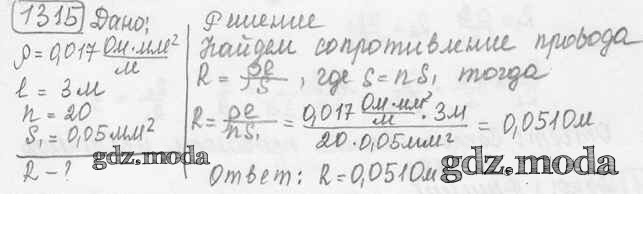 1315 Дано:
ρ = 0,017 Ом·мм²/м
l = 3 м
n = 20
S₁ = 0,05 мм²
R - ?
Решение
Найдем сопротивление провода
R = ρl/S, где S = nS₁ тогда
R = ρl/nS₁ = 0,017 Ом·мм²/м · 3м / 20 · 0,05 мм² = 0,051 Ом
Ответ: R = 0,051 Ом
gdz.moda
gdz.moda